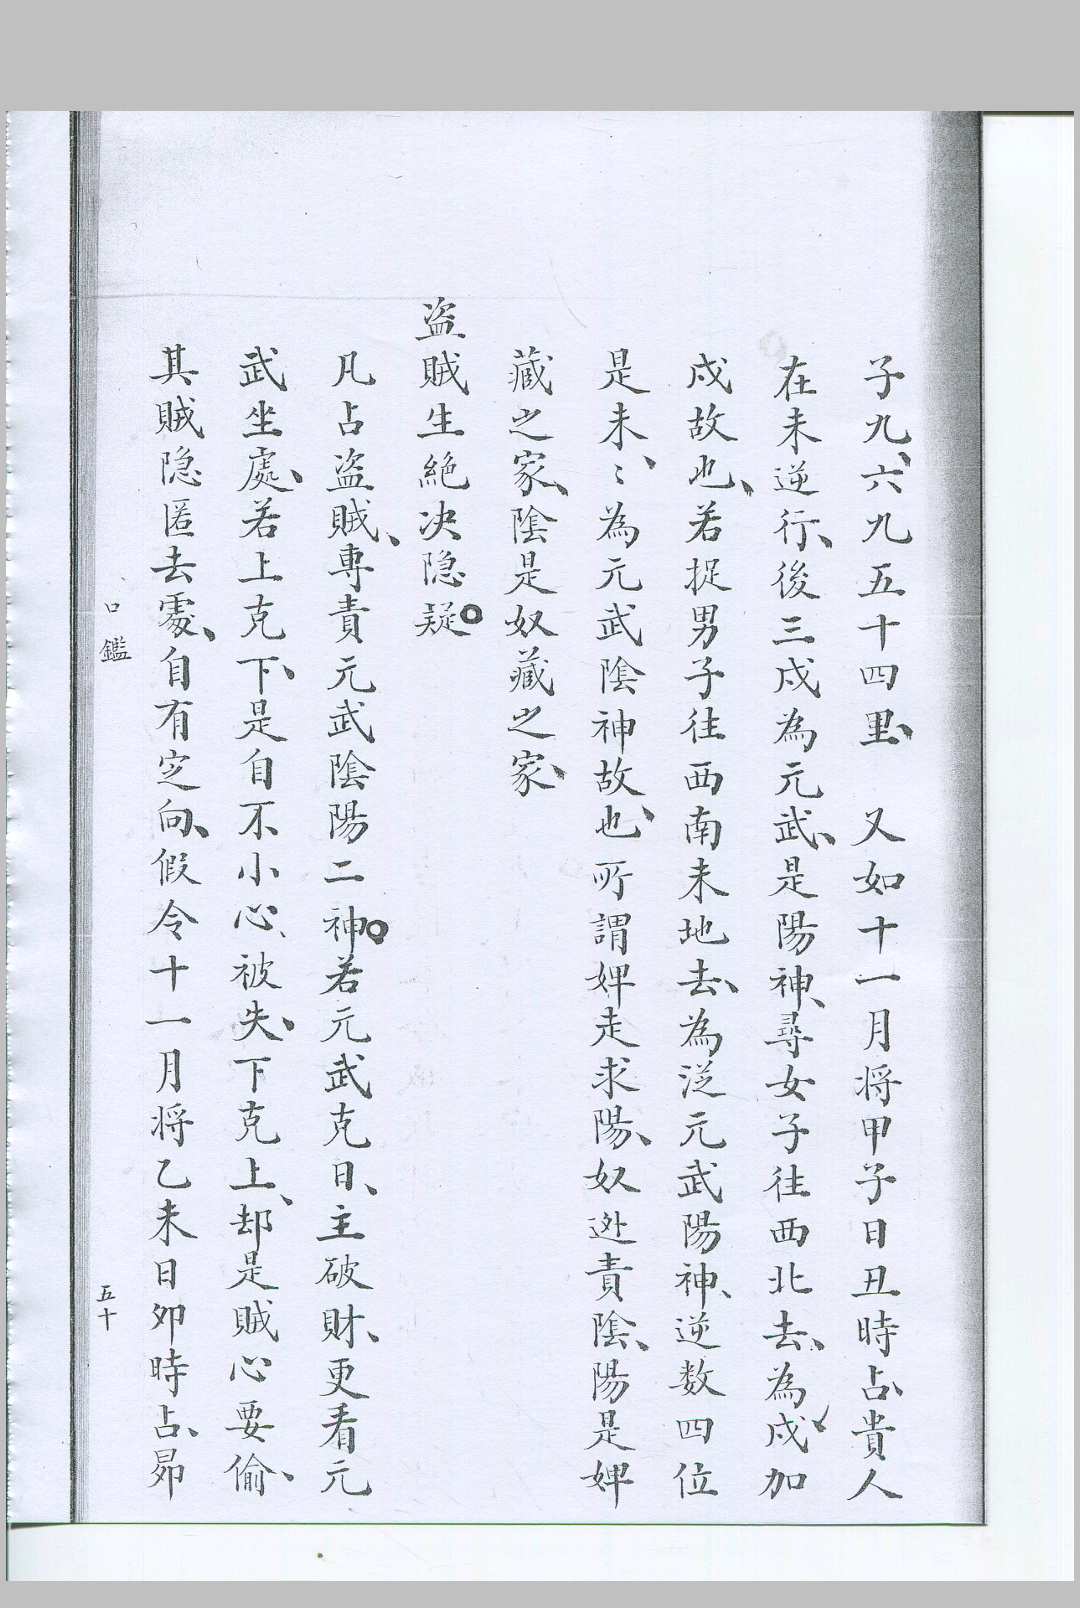 子九、六九五十四里、 又如十一月将甲子日丑時占、貴人
在未逆行、後三戍為元武、是陽神、尋女子往西北去、為戍加
戍故也、若捉男子往西南未地去、為逆元武陽神、逆数四位
是未、〻為元武陰神故也、所謂婢走求陽、奴逃責陰、陽是婢
藏之家、陰是奴藏之家、
盗賊生絕决隐疑。
凡占盗賊、專責元武陰陽二神。若元武克日、主破財、更看元
武坐處、若上克下、是自不小心、被失、下克上、却是賊心要偷、
其賊隐匿去處、自有定向、假令十一月将乙未日夘時占、昴
口鑑
五十